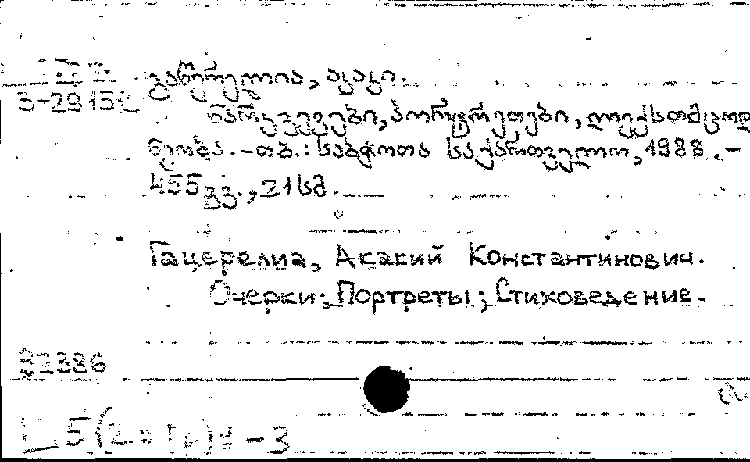 გაწერელია, აკაკი.
ნარკვევები, პორტრეტები, ლექსთმცოდ
ნეობა. - თბ.: საბჭოთა საქართველო, 1988. -
455 გვ., 21 სმ.
Гацерелиа, Акакий Константинович.
Очерки; Портреты; Стиховедение.
82386